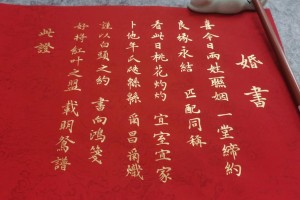 婚書
喜今日兩姓聯姻 一堂締約
良緣永結 匹配同稱
看此日桃花灼灼 宜室宜家
卜他年瓜瓞綿綿 爾昌爾熾
謹以白頭之約 書向鴻箋
好將紅葉之盟 載明鴛譜
此證